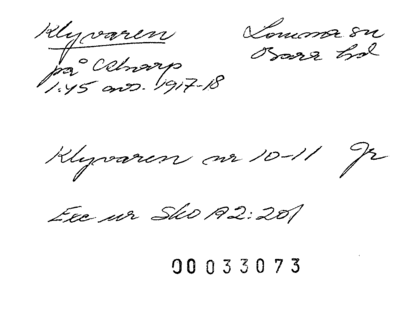 Klyvaren Lomma sn
på Alnarp Bara hd
1:45 avs. 1917-18
Klyvaren nr 10-11 Jr
Exc ur Sko A2:201
00033073